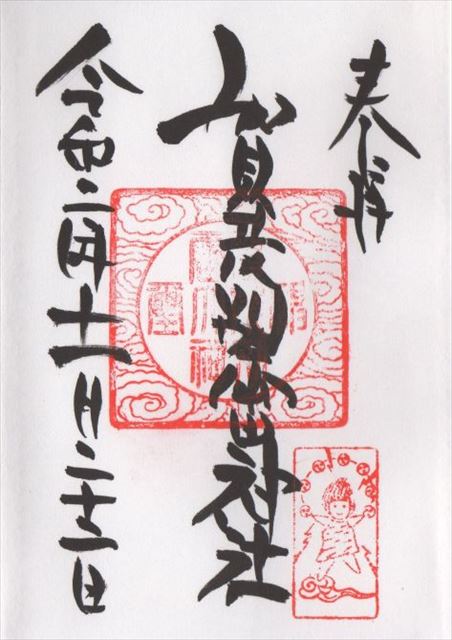 奉拝
賀茂別雷神社
令和二年十一月二十二日